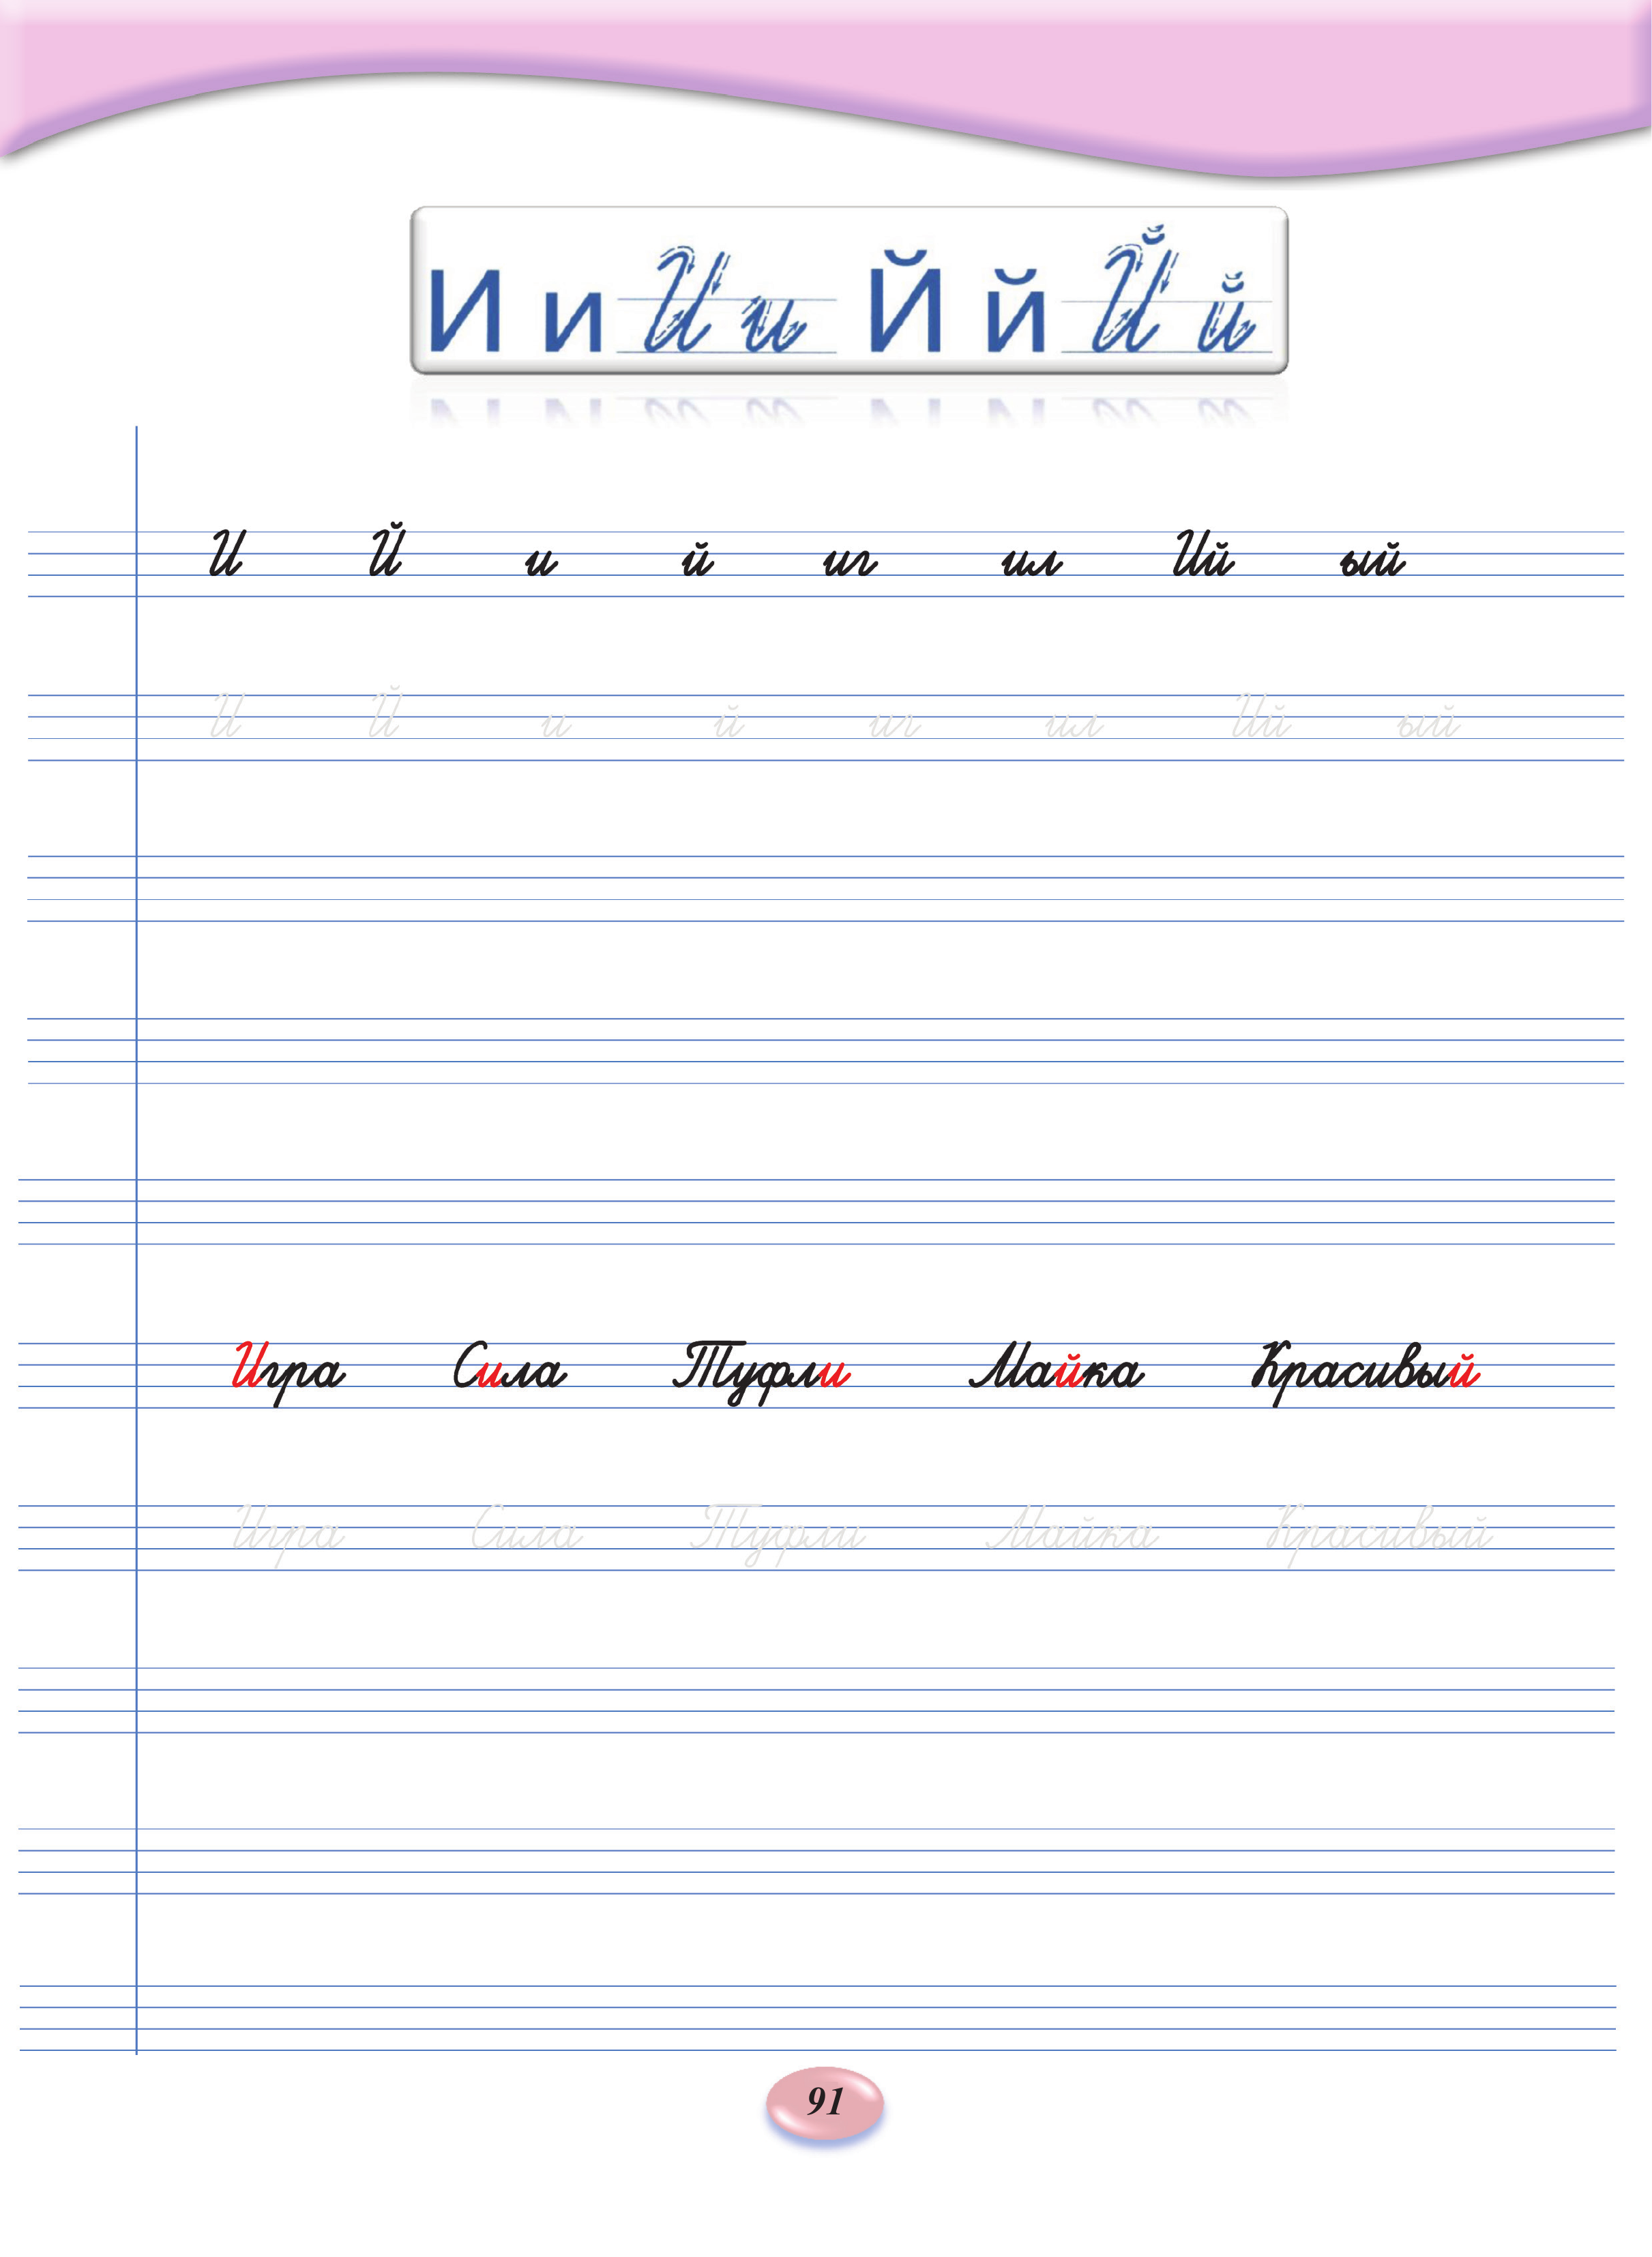 И и И и Й й Й й
И Й и й иг ил Ий ый
И Й и й иг ил Ий ый
Игра Сила Туфли Майка Красивый
Игра Сила Туфли Майка Красивый
91